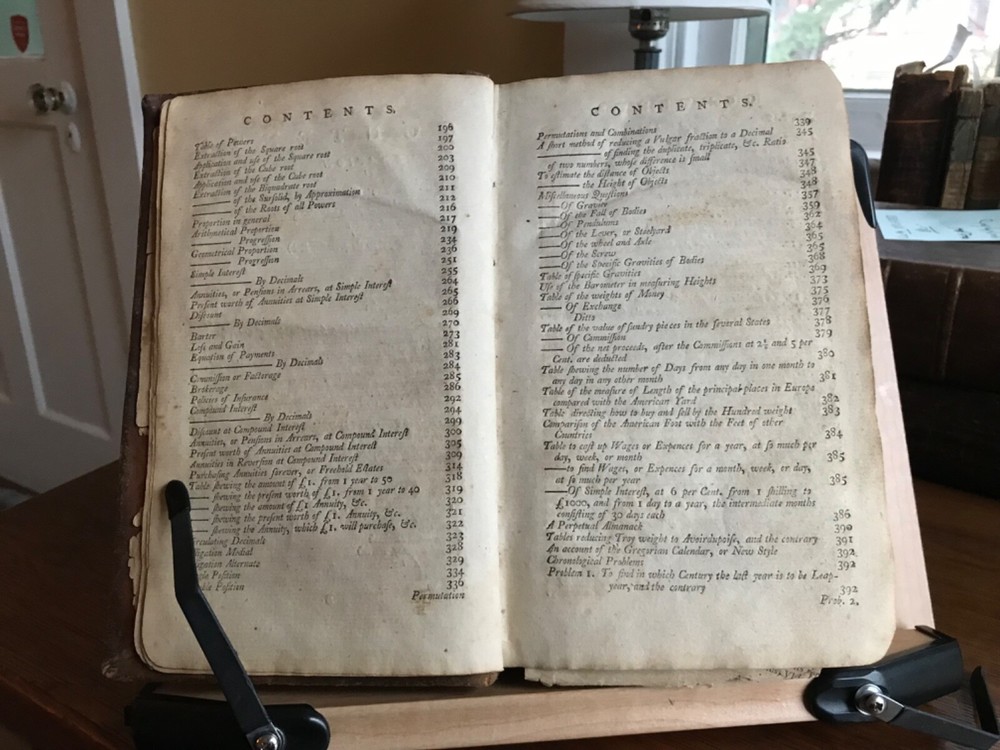 CONTENTS.
Table of Powers 196
Extraction of the Square root 197
Application and use of the Square root 200
Extraction of the Cube root 203
Application and use of the Cube root 209
Extraction of the Biquadrate root 210
—— of the Sursolid, by Approximation 211
—— of the Roots of all Powers 212
Proportion in general 216
Arithmetical Proportion 217
—— Progression 219
Geometrical Proportion 234
—— Progression 236
Simple Interest 251
—— By Decimals 255
Annuities, or Pensions in Arrears, at Simple Interest 264
Present worth of Annuities at Simple Interest 265
Discount 266
—— By Decimals 269
Barter 270
Loss and Gain 273
Equation of Payments 281
—— By Decimals 283
Commission or Factorage 284
Brokerage 285
Policies of Insurance 286
Compound Interest 292
—— By Decimals 294
Discount at Compound Interest 299
Annuities, or Pensions in Arrears, at Compound Interest 300
Present worth of Annuities at Compound Interest 305
Annuities in Reversion at Compound Interest 309
Purchasing Annuities forever, or Freehold Estates 314
Table shewing the amount of £1. from 1 year to 50 318
—— shewing the present worth of £1. from 1 year to 40 319
—— shewing the amount of £1 Annuity, &c. 320
—— shewing the present worth of £1. Annuity, &c. 321
—— shewing the Annuity, which £1. will purchase, &c. 322
Decimals 323
Medial 328
Alternate 329
Position 334
Position 336
Permutation
CONTENTS.
Permutations and Combinations 339
A short method of reducing a Vulgar fraction to a Decimal 345
—— of finding the duplicate, triplicate, &c. Ratio
of two numbers, whose difference is small 345
To estimate the distance of Objects 347
—— the Height of Objects 348
Miscellaneous Questions 348
—— Of Gravity 357
—— Of the Fall of Bodies 359
—— Of Pendulums 362
—— Of the Lever, or Steelyard 364
—— Of the wheel and Axle 365
—— Of the Screw 365
—— Of the Specific Gravities of Bodies 368
Table of specific Gravities 369
Use of the Barometer in measuring Heights 373
Table of the weights of Money 375
—— Of Exchange 376
Ditto 377
Table of the value of sundry pieces in the several States 378
—— Of Commission 379
—— Of the net proceeds, after the Commissions at 2½ and 5 per
Cent. are deducted 380
Table shewing the number of Days from any day in one month to
any day in any other month 381
Table of the measure of Length of the principal places in Europe
compared with the American Yard 382
Table directing how to buy and sell by the Hundred weight 383
Comparison of the American Foot with the Feet of other
Countries 384
Table to cast up Wages or Expences for a year, at so much per
day, week, or month 385
—— to find Wages, or Expences for a month, week, or day,
at so much per year 385
—— Of Simple Interest, at 6 per Cent. from 1 shilling to
£1000, and from 1 day to a year, the intermediate months
consisting of 30 days each 386
A Perpetual Almanack 390
Tables reducing Troy weight to Avoirdupoise, and the contrary 391
An account of the Gregorian Calendar, or New Style 392
Chronological Problems 392
Problem 1. To find in which Century the last year is to be Leap-
year, and the contrary 392
Prob. 2.